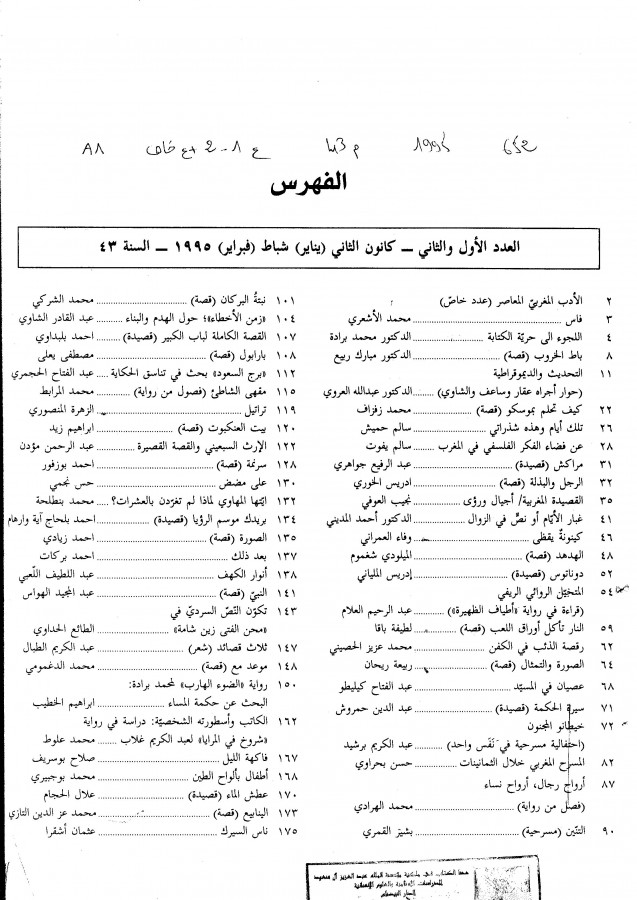 652 1995 م 43 ع 1-2 + ع خاص A1
الفهرس
العدد الأول والثاني ــ كانون الثاني (يناير) شباط (فبراير) ١٩٩٥ ــ السنة ٤٣
٢ الأدب المغربيّ المعاصر (عدد خاصّ)
٣ فاس محمد الأشعري
٤ اللجوء الى حريّة الكتابة الدكتور محمد برادة
٨ باط الخروب (قصة) الدكتور مبارك ربيع
١١ التحديث والديموقراطية
(حوار أجراه عقار وساعف والشاوي) الدكتور عبدالله العروي
٢٢ كيف تحلم بموسكو (قصة) محمد زفزاف
٢٦ تلك أيام وهذه شذراتي سالم حميش
٢٨ عن فضاء الفكر الفلسفي في المغرب سالم يفوت
٣١ مراكش (قصيدة) عبد الرفيع جواهري
٣٢ الرجل والبذلة (قصة) ادريس الخوري
٣٥ القصيدة المغربية/ أجيال ورؤى نجيب العوفي
٤١ غبار الأيّام أو نصٌ في الزوال الدكتور أحمد المديني
٤٦ كينونةٌ يقظى وفاء العمراني
٤٨ الهدهد (قصة) الميلودي شغموم
٥٢ دوناتوس (قصيدة) إدريس الملياني
٥٤ المتخيّل الروائي الريفي
(قراءة في رواية «أطياف الظهيرة») عبد الرحيم العلام
٥٩ النار تأكل أوراق اللعب (قصة) لطيفة باقا
٦٢ رقصة الذئب في الكفن محمد عزيز الحصيني
٦٤ الصورة والتمثال (قصة) ربيعة ريحان
٦٨ عصيان في المسيّد عبد الفتاح كيليطو
٧١ سيرة الحكمة (قصيدة) عبد الدين حمروش
٧٢ خيطانو المجنون
(احتفالية مسرحية في نَفَس واحد) عبد الكريم برشيد
٨٢ المسرح المغربي خلال الثمانينات حسن بحراوي
٨٧ أرواح رجال، أرواح نساء
(فصل من رواية) محمد الهرادي
٩٠ التنّين (مسرحية) بشير القمري
١٠١ نبتةُ البركان (قصة) محمد الشركي
١٠٤ «زمن الأخطاء»؛ حول الهدم والبناء عبد القادر الشاوي
١٠٧ القصة الكاملة لباب الكبير (قصيدة) احمد بلبداوي
١٠٨ بارابول (قصة) مصطفى يعلى
١١٢ «برج السعود» بحث في تناسق الحكاية عبد الفتاح الحجمري
١١٥ مقهى الشاطئ (فصول من رواية) محمد المرابط
١١٩ تراتيل الزهرة المنصوري
١٢٠ بيت العنكبوت (قصة) ابراهيم زيد
١٢٢ الإرث السبعيني والقصة القصيرة عبد الرحمن مؤدن
١٢٨ سرنمة (قصة) احمد بوزفور
١٣٠ على مضض حس نجمي
١٣٢ ايّتها المهاوي لماذا لم تغرّدن بالعشرات؟ محمد بنطلحة
١٣٤ بريدك موسم الرؤيا (قصيدة) احمد بلحاج آية وارهام
١٣٥ الصورة (قصة) احمد زيادي
١٣٧ بعد ذلك احمد بركات
١٣٨ أنوار الكهف عبد اللطيف اللّعبي
١٤١ النبيّ (قصة) عبد المجيد الهواس
١٤٣ تكوّن النّصّ السرديّ في
«محن الفتى زين شامة» الطائع الحداوي
١٤٧ ثلاث قصائد (شعر) عبد الكريم الطبال
١٤٨ موعد مع (قصة) محمد الدغمومي
١٥٠ رواية «الضوء الهارب» لمحمد برادة:
البحث عن حكمة المساء ابراهيم الخطيب
١٦٢ الكاتب وأسطورته الشخصيّة: دراسة في رواية
«شروخ في المرايا» لعبد الكريم غلاب محمد علوط
١٦٧ فاكهة الليل صلاح بوسريف
١٦٨ أطفال بألواح الطين محمد بوجبيري
١٧٠ عطش الماء (قصيدة) علال الحجام
١٧٣ الينابيع (قصة) محمد عز الدين التازي
١٧٥ ناس السيرك عثمان أشقرا